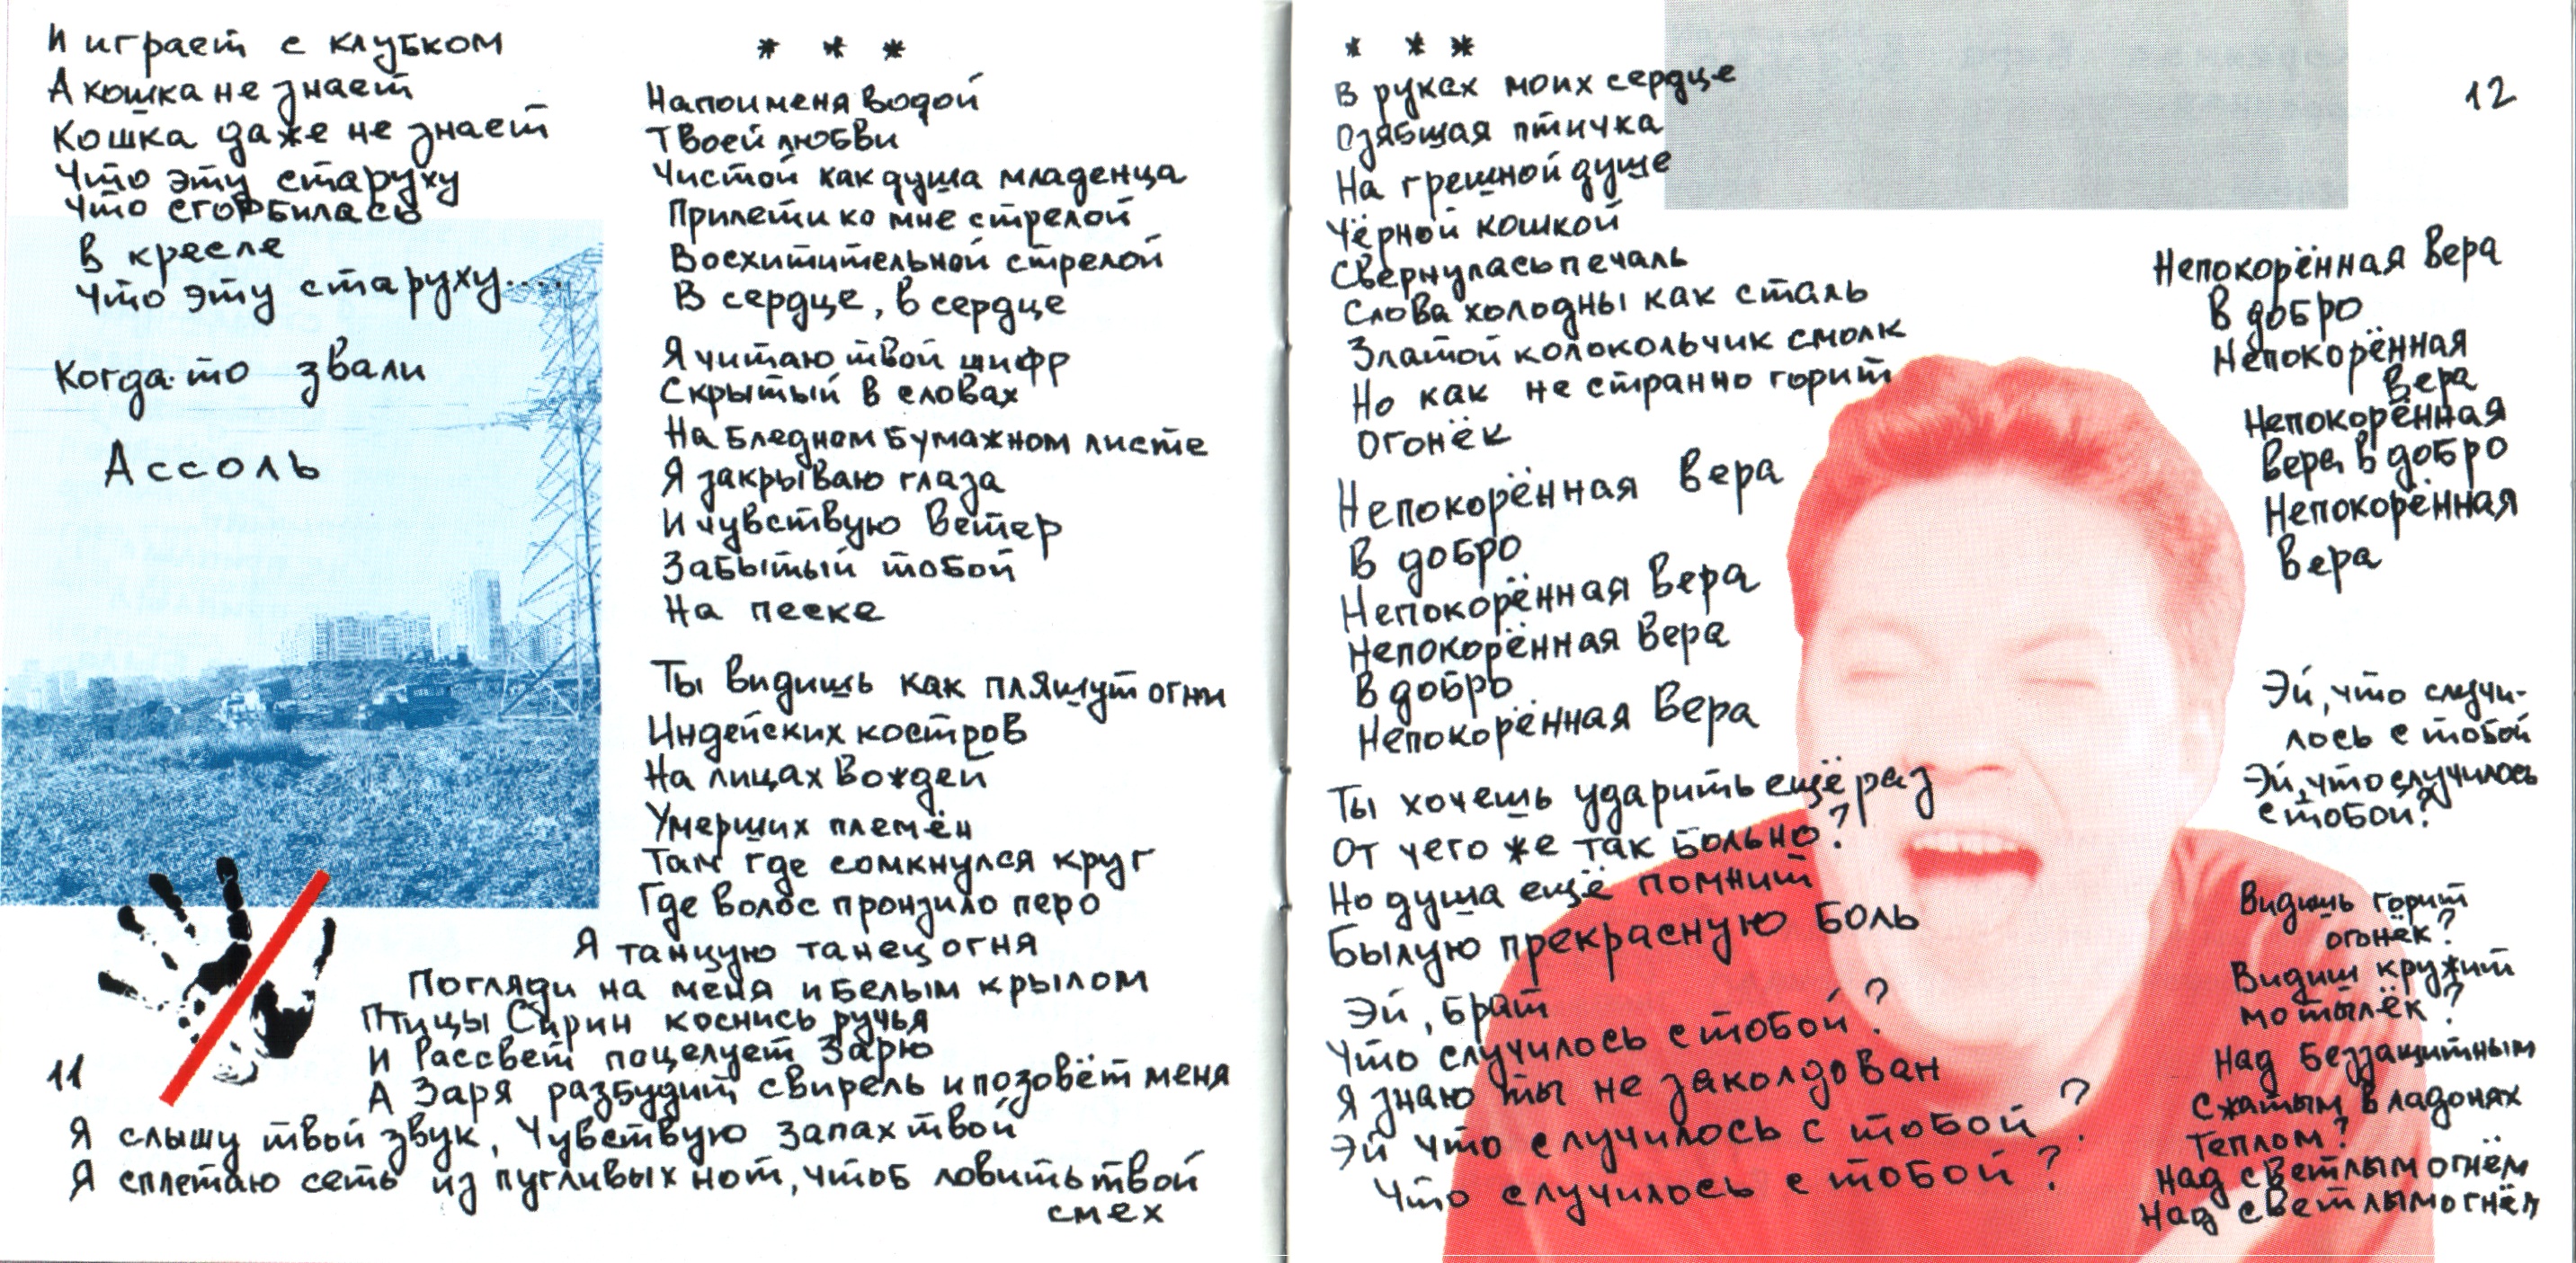 И играет с клубком
А кошка не знает
Кошка даже не знает
Что эту старуху
Что сгорбилась
в кресле
Что эту старуху....
Когда-то звали
Ассоль
11
* * *
Напои меня водой
Твоей любви
Чистой как душа младенца
Прилети ко мне стрелой
Восхитительной стрелой
В сердце, в сердце
Я читаю твой шифр
Скрытый в словах
На бледном бумажном листе
Я закрываю глаза
И чувствую ветер
Забытый тобой
На песке
Ты видишь как пляшут огни
Индейских костров
На лицах вождей
Умерших племён
Там где сомкнулся круг
Где волос пронзило перо
Я танцую танец огня
Погляди на меня и белым крылом
Птицы Сирин коснись ручья
И Рассвет поцелует Зарю
А Заря разбудит свирель и позовёт меня
Я слышу твой звук, Чувствую запах твой
Я сплетаю сеть из пугливых нот, чтоб ловить твой
смех
* * *
В руках моих сердце
Озябшая птичка
На грешной душе
Чёрной кошкой
Свернулась печаль
Слова холодны как сталь
Златой колокольчик смолк
Но как не странно горит
Огонёк
Непокорённая вера
В добро
Непокорённая вера
Непокорённая вера
В добро
Непокорённая вера
Ты хочешь ударить ещё раз
От чего же так больно?
Но душа ещё помнит
Былую прекрасную боль
Эй, брат
Что случилось с тобой?
Я знаю ты не заколдован
Эй что случилось с тобой?
Что случилось с тобой?
12
Непокорённая вера
В добро
Непокорённая
вера
Непокорённая
вера в добро
Непокорённая
вера
Эй, что случи-
лось с тобой
Эй, что случилось
с тобой?
Видишь горит
огонёк?
Видиш кружит
мотылёк?
Над беззащитным
Сжатым в ладонях
Теплом?
Над светлым огнём
Над светлым огнём